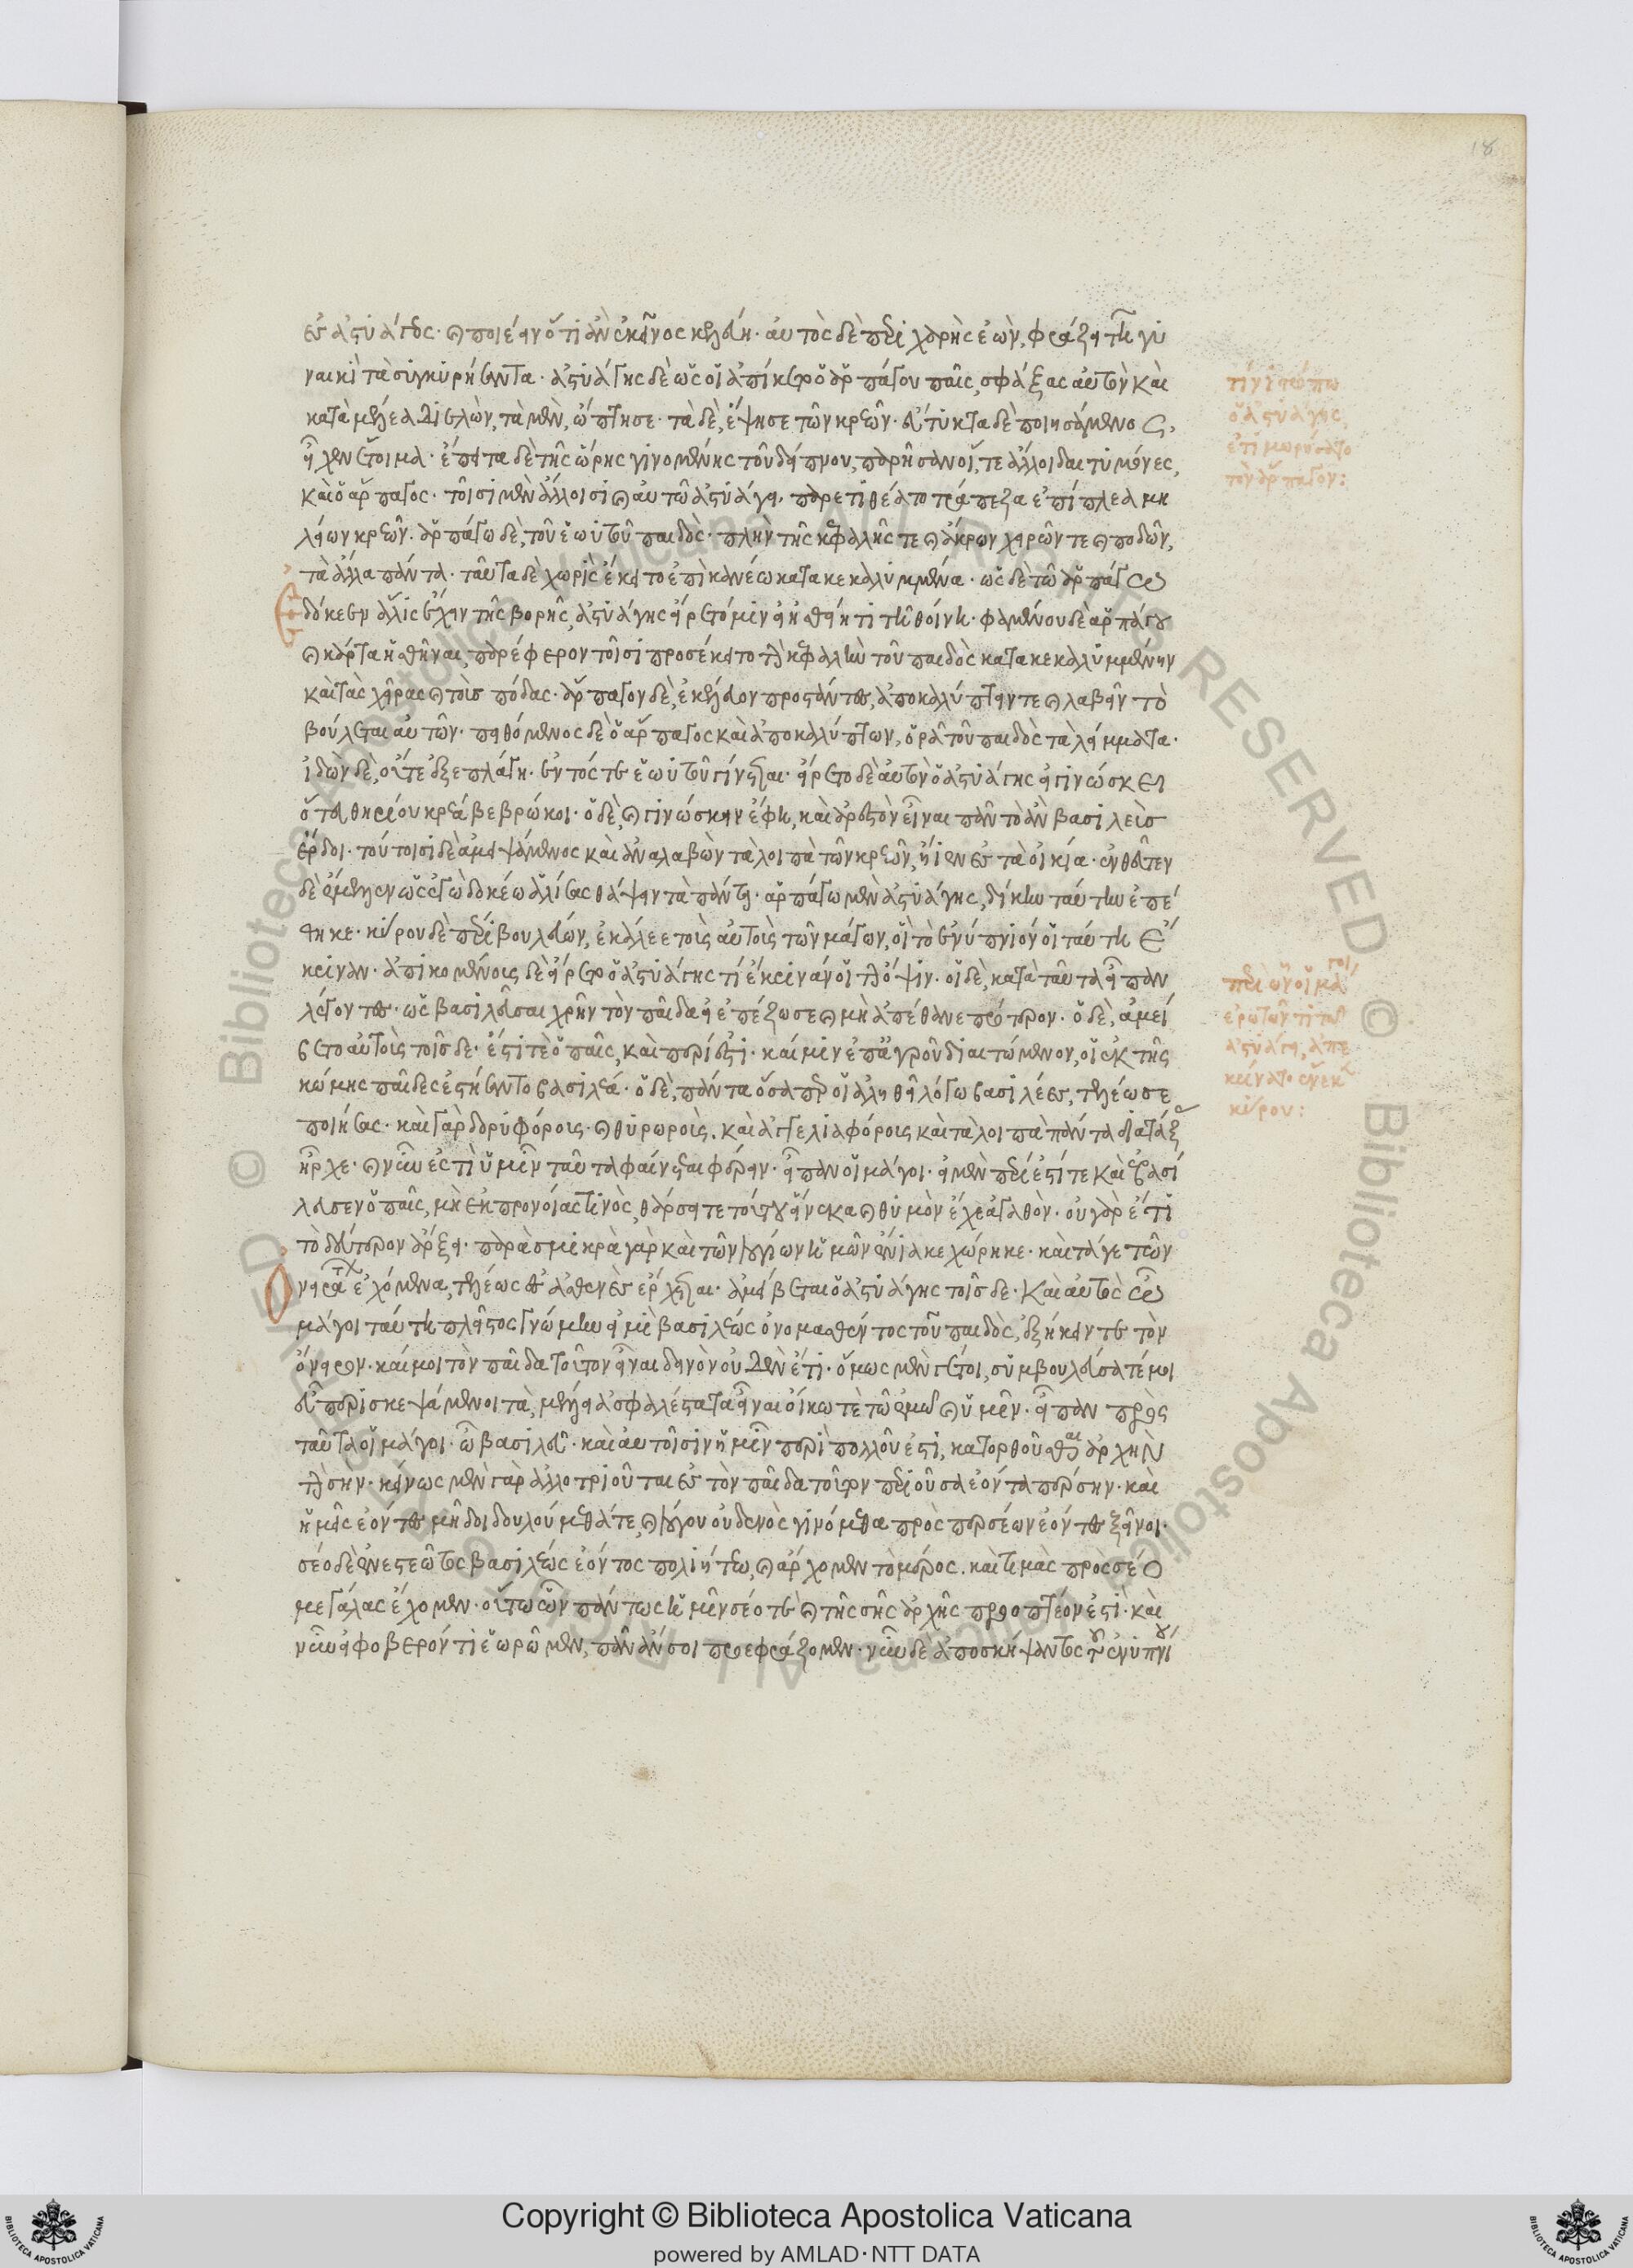 ἐς ἀστυάγεος· καὶ ποιέειν ὅτι ἂν ἐκεῖνος κελεύη· αὐτὸς δὲ περιχαρὴς ἐὼν, φράζει τῆ γυ
ναικὶ τὰ συγκυρήσαντα· ἀστυάγης δὲ ὥς οἱ ἀπίκετο ὁ ἁρπάγου παῖς, σφάξας αὐτὸν καὶ
κατὰ μέλεα διελὼν, τὰ μὲν, ὤπτησε· τὰ δὲ, ἕψησε τῶν κρεῶν· εὔτυκτα δὲ ποιησάμενος,
εἶχεν ἕτοιμα· ἐπεί τε δὲ τῆς ὥρης γινομένης τοῦ δείπνου, παρῆσαν οἵ τε ἄλλοι δαιτυμόνες,
καὶ ὁ ἅρπαγος· τοῖσι μὲν ἄλλοισι καὶ αὐτῶ ἀστυάγει, παρετιθέατο τράπεζαι ἐπίπλεαι μη
λείων κρεῶν· ἁρπάγω δὲ, τοῦ ἑωυτοῦ παιδὸς· πλὴν τῆς κεφαλῆς τε καὶ ἄκρων χειρῶν τε καὶ ποδῶν,
τὰ ἄλλα πάντα· ταῦτα δὲ χωρὶς ἔκειτο ἐπὶ κανέω κατακεκαλυμμένα· ὡς δὲ τῶ ἁρπάγω
δόκεεν ἅλις ἔχειν τῆς βορῆς, ἀστυάγης εἴρετό μιν εἰ ἡσθείη τι τῆ θοίνη· φαμένου δὲ ἁρπάγου
καὶ κάρτα ἡσθῆναι, παρέφερον τοῖσι προσέκειτο τὴν κεφαλὴν τοῦ παιδὸς κατακεκαλυμμένην
καὶ τὰς χεῖρας καὶ τοὺς πόδας· ἅρπαγον δὲ, ἐκέλευον προστάντες, ἀποκαλύπτειν τε καὶ λαβεῖν τὸ
βούλεται αὐτῶν· πειθόμενος δὲ ὁ ἅρπαγος καὶ ἀποκαλύπτων, ὁρᾶ τοῦ παιδὸς τὰ λείμματα·
ἰδὼν δὲ, οὔτε ἐξεπλάγη· ἐντός τε ἑωυτοῦ γίνεται· εἴρετο δὲ αὐτὸν ὁ ἀστυάγης εἰ γινώσκει
ὅτευ θηρίου κρέα βεβρώκοι· ὁ δὲ, καὶ γινώσκειν ἔφη, καὶ ἀρεστὸν εἶναι πᾶν τὸ ἂν βασιλεὺς
ἕρδοι· τούτοισι δὲ ἀμειψάμενος καὶ ἀναλαβὼν τὰ λοιπὰ τῶν κρεῶν, ἤιεν ἐς τὰ οἰκία· ἐνθεῦτεν
δὲ ἔμελλεν ὡς ἐγὼ δοκέω ἁλίσας θάψειν τὰ πάντα· ἁρπάγω μὲν ἀστυάγης, δίκην ταύτην ἐπέ
θηκε· κύρου δὲ πέρι βουλεύων, ἐκάλεε τοὺς αὐτοὺς τῶν μάγων, οἳ τὸ ἐνύπνιόν οἱ ταύτη ἔ
κριναν· ἀπικομένους δὲ εἴρετο ὁ ἀστυάγης τῆ ἔκρινάν οἱ τὴν ὄψιν· οἱ δὲ, κατὰ ταὐτὰ εἶπαν
λέγοντες· ὡς βασιλεῦσαι χρῆν τὸν παῖδα εἰ ἐπέζωσε καὶ μὴ ἀπέθανε πρότερον· ὁ δὲ, ἀμεί
βετο αὐτοὺς τοῖσδε· ἔστι τε ὁ παῖς, καὶ περίεστι· καί μιν ἐπ' ἀγροῦ διαιτώμενον, οἱ ἐκ τῆς
κώμης παῖδες ἐστήσαντο βασιλέα· ὁ δὲ, πάντα ὅσα περ οἱ ἀληθεῖ λόγω βασιλέες, ἐτελέωσε
ποιήσας· καὶ γὰρ δορυφόρους· καὶ θυρωροὺς· καὶ ἀγγελιαφόρους καὶ τὰ λοιπὰ πάντα διατάξας
ἦρχε· καὶ νῦν ἐς τί ὑμῖν ταῦτα φαίνεται φέρειν· εἶπαν οἱ μάγοι· εἰ μὲν περίεστί τε καὶ ἐβασί
λευσεν ὁ παῖς, μὴ ἐκ προνοίας τινὸς, θάρσει τε τούτου εἵνεκα καὶ θυμὸν ἔχε ἀγαθὸν· οὐ γὰρ ἔτι
τὸ δεύτερον ἄρξει· παρὰ σμικρὰ γὰρ καὶ τῶν λογίων ἡμῶν ἔνια κεχώρηκε· καὶ τά γε τῶν
ὀνειράτων ἐχόμενα, τελέως ἐς ἀσθενὲς ἔρχεται· ἀμείβεται ὁ ἀστυάγης τοῖσδε· καὶ αὐτὸς ὦ
μάγοι ταύτη πλεῖστος γνώμην εἰμὶ βασιλέως ὀνομασθέντος τοῦ παιδὸς, ἐξήκειν τε τὸν
ὄνειρον· καί μοι τὸν παῖδα τοῦτον εἶναι δεινὸν οὐδὲν ἔτι· ὅμως μὲν γέτοι, συμβουλεύσατέ μοι
εὖ περισκεψάμενοι τὰ, μέλλει ἀσφαλέστατα εἶναι οἴκω τε τῶ ἐμῶ καὶ ὑμῖν· εἶπαν πρὸς
ταῦτα οἱ μάγοι· ὦ βασιλεῦ· καὶ αὐτοῖσιν ἡμῖν περὶ πολλοῦ ἐστι, κατορθοῦσθαι ἀρχὴν
τὴν σήν· κείνως μὲν γὰρ ἀλλοτριοῦται ἐς τὸν παῖδα τοῦτον περιιοῦσα ἐόντα πέρσην· καὶ
ἡμεῖς ἐόντες μῆδοι δουλούμεθά τε, καὶ λόγου οὐδενὸς γινόμεθα πρὸς περσέων ἐόντες ξεῖνοι·
σέο δὲ ἐνεστεῶτος βασιλέως ἐόντος πολιήτεω, καὶ ἄρχομεν τὸ μέρος· καὶ τιμὰς πρὸς σέο
μεγάλας ἔχομεν· οὕτω ὦν πάντως ἡμῖν σέο τε καὶ τῆς σῆς ἀρχῆς προοπτέον ἐστὶ· καὶ
νῦν εἰ φοβερόν τι ἑωρῶμεν, πᾶν ἄν σοι προεφράζομεν· νῦν δὲ ἀποσκήψαντος τοῦ ἐνυπνίου
τίνι τρόπω
ὁ ἀστυάγης,
ἐτιμωρήσατο
τὸν ἅρπαγον:
περὶ ὧν οἱ μάγοι
ἐρωτῶντι τῶ
ἀστυάγει, ἀπε
κρίναντο ἕνεκα
κύρου:
18
© Biblioteca Apostolica Vaticana ALL RIGHTS RESERVED
Copyright © Biblioteca Apostolica Vaticana
powered by AMLAD·NTT DATA
BIBLIOTECA APOSTOLICA VATICANA
BIBLIOTECA APOSTOLICA VATICANA